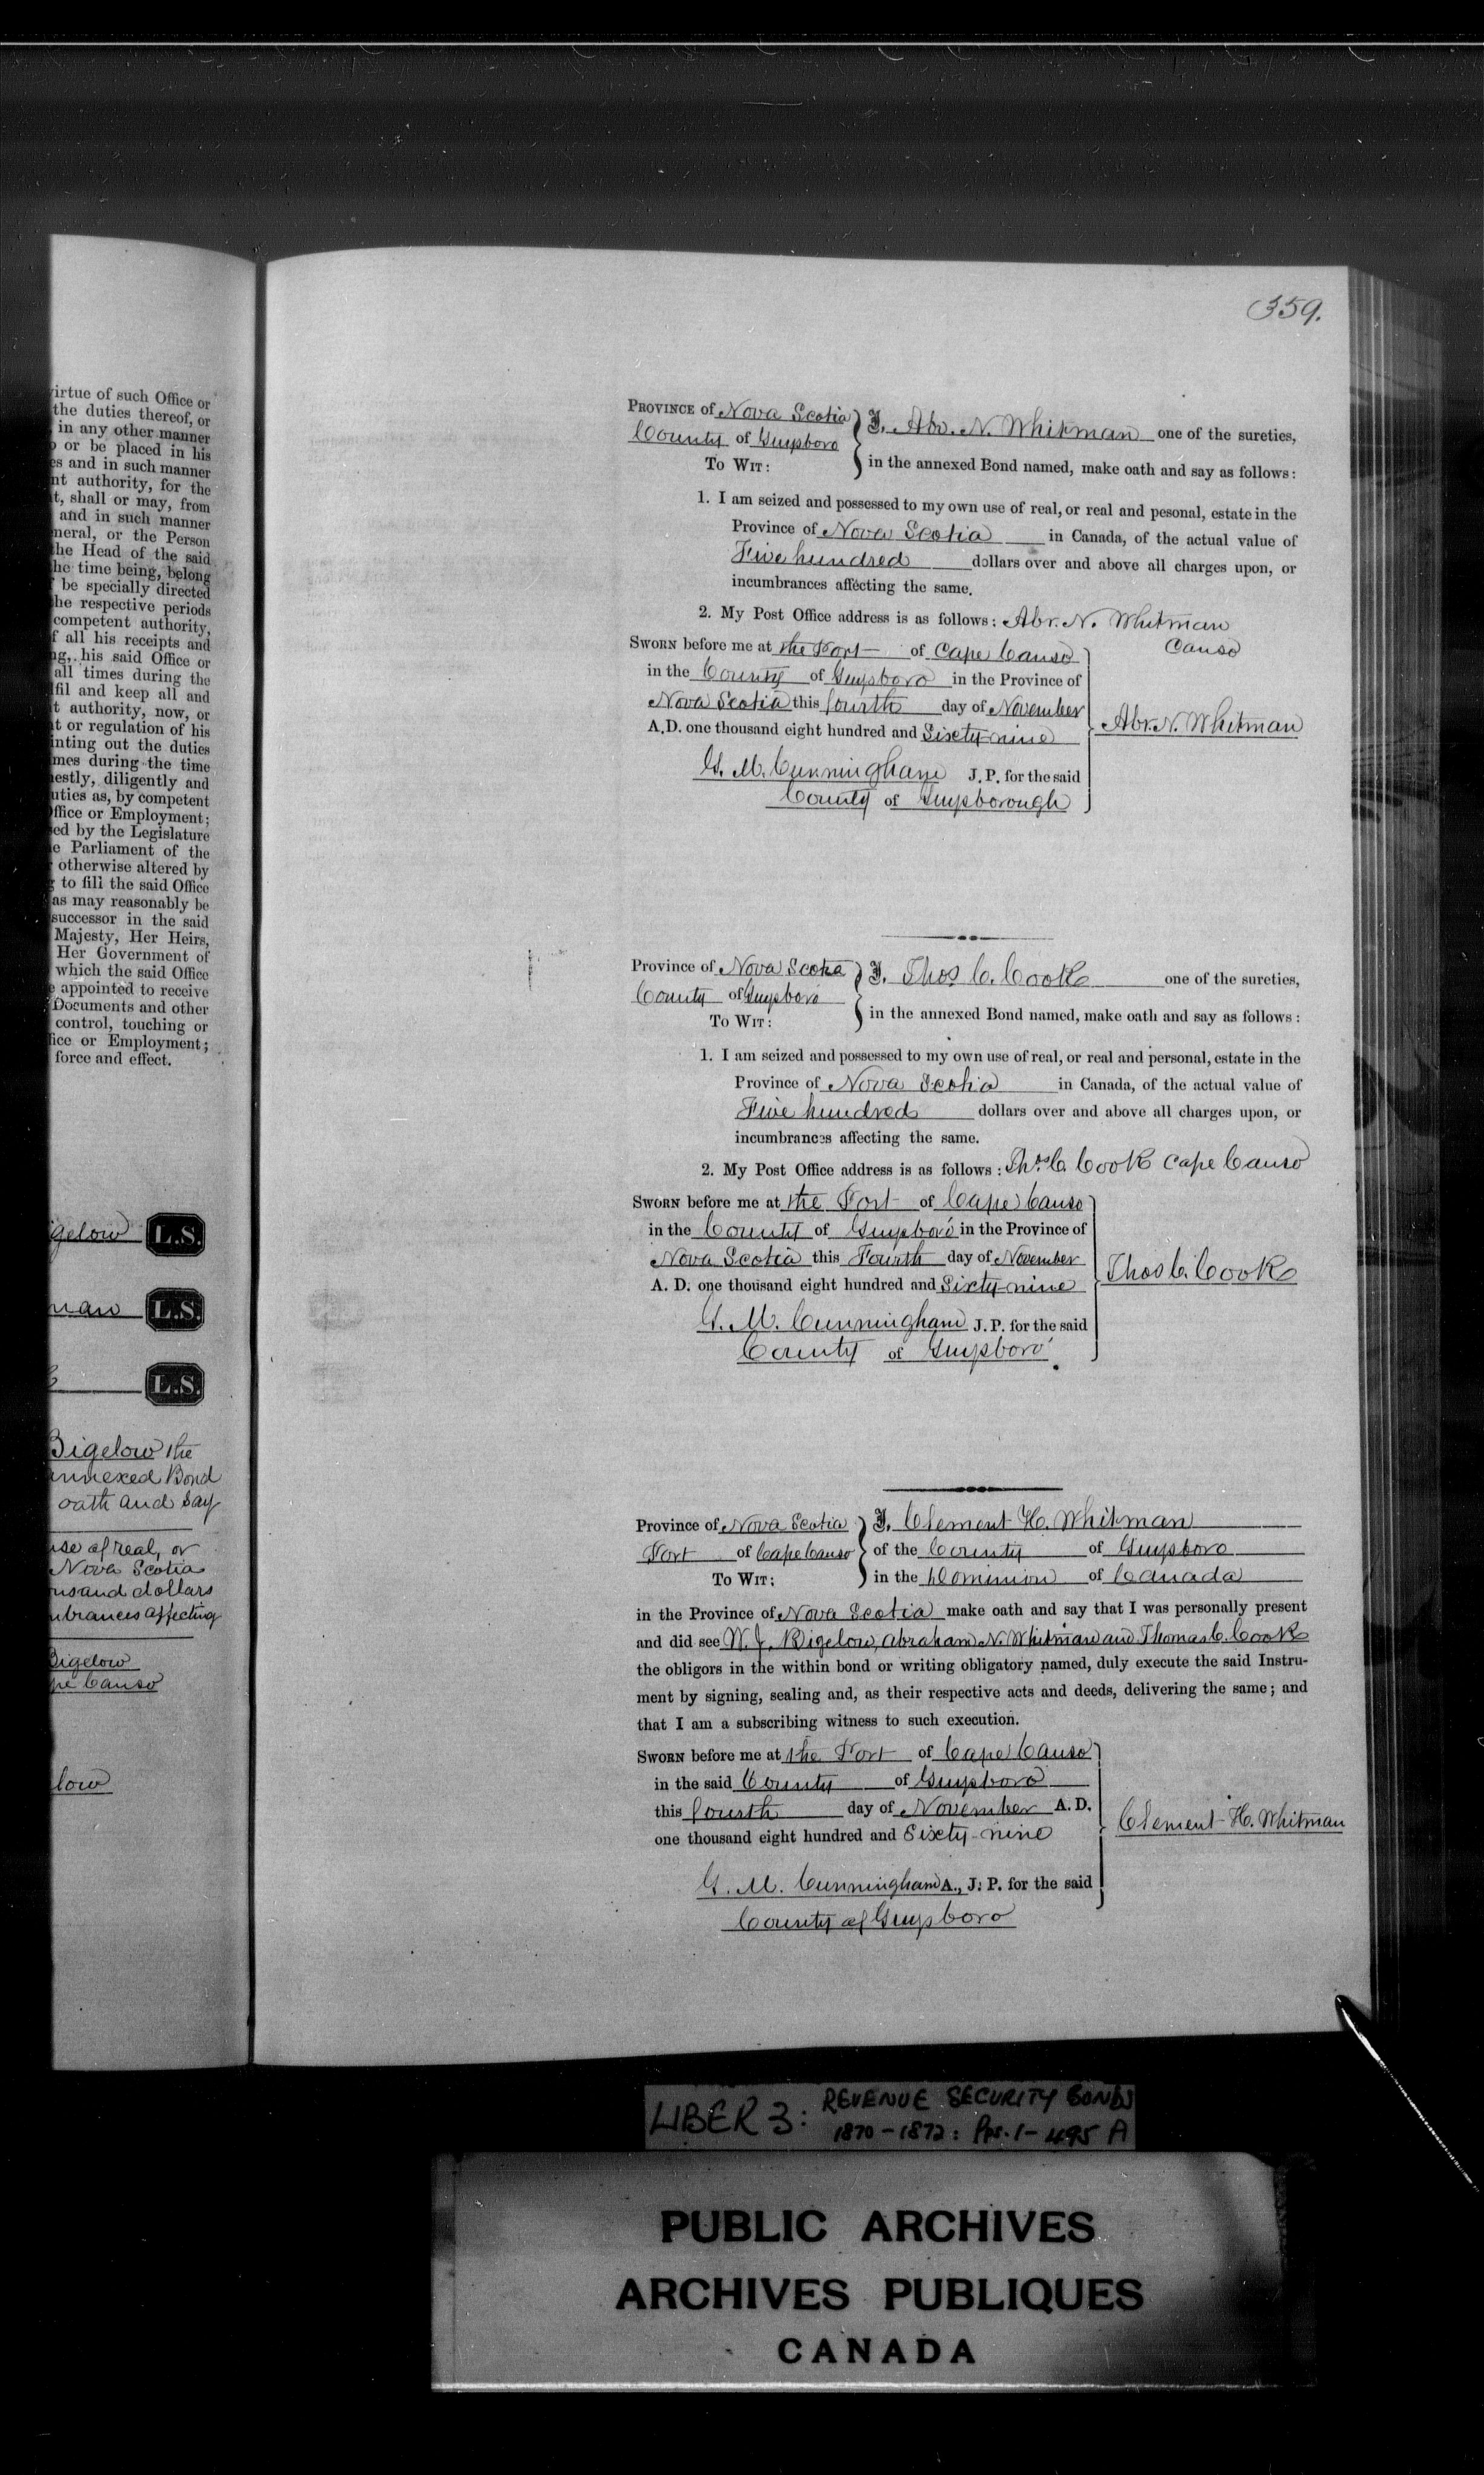 virtue of such Office or
the duties thereof, or
in any other manner
or be placed in his
es and in such manner
nt authority, for the
t, shall or may, from
and in such manner
neral, or the Person
he Head of the said
he time being, belong
be specially directed
he respective periods
competent authority,
f all his receipts and
ng, his said Office or
all times during the
lfil and keep all and
t authority, now, or
nt or regulation of his
inting out the duties
mes during the time
nestly, diligently and
uties as, by competent
Office or Employment;
ed by the Legislature
e Parliament of the
otherwise altered by
g to fill the said Office
as may reasonably be
successor in the said
Majesty, Her Heirs,
Her Government of
which the said Office
e appointed to receive
Documents and other
control, touching or
fice or Employment;
force and effect.
igelow L.S.
man L.S.
L.S.
Bigelow the
annexed Bond
oath and say
use of real, or
Nova Scotia
ousand dollars
mbrances affecting
Bigelow
pe Canso
low
359.
PROVINCE of Nova Scotia } I, Abr. N. Whitman one of the sureties,
County of Guysboro
To WIT: in the annexed Bond named, make oath and say as follows:
1. I am seized and possessed to my own use of real, or real and pesonal, estate in the
Province of Nova Scotia in Canada, of the actual value of
Five hundred dollars over and above all charges upon, or
incumbrances affecting the same.
2. My Post Office address is as follows: Abr. N. Whitman
Canso
SWORN before me at the Port of Cape Canso
in the County of Guysboro in the Province of
Nova Scotia this fourth day of November
A.D. one thousand eight hundred and Sixty-nine } Abr. N. Whitman
G. M. Cunningham J. P. for the said
County of Guysborough
Province of Nova Scotia } I, Thos C. Cook one of the sureties,
County of Guysboro
To WIT: in the annexed Bond named, make oath and say as follows:
1. I am seized and possessed to my own use of real, or real and personal, estate in the
Province of Nova Scotia in Canada, of the actual value of
Five hundred dollars over and above all charges upon, or
incumbrances affecting the same.
2. My Post Office address is as follows: Thos C. Cook Cape Canso
SWORN before me at the Port of Cape Canso
in the County of Guysboro' in the Province of
Nova Scotia this Fourth day of November
A. D. one thousand eight hundred and Sixty-nine } Thos C. Cook
G. M. Cunningham J. P. for the said
County of Guysboro'.
Province of Nova Scotia } I, Clement H. Whitman
Port of Cape Canso } of the County of Guysboro
To WIT; } in the Dominion of Canada
in the Province of Nova Scotia make oath and say that I was personally present
and did see W. J. Bigelow, Abraham N. Whitman and Thomas C. Cook
the obligors in the within bond or writing obligatory named, duly execute the said Instru-
ment by signing, sealing and, as their respective acts and deeds, delivering the same; and
that I am a subscribing witness to such execution.
SWORN before me at the Port of Cape Canso
in the said County of Guysboro
this fourth day of November A. D.
one thousand eight hundred and Sixty-nine } Clement H. Whitman
G. M. Cunningham A., J. P. for the said
County of Guysboro
LIBER 3: REVENUE SECURITY BONDS
1870-1872: Pps. 1-495 A
PUBLIC ARCHIVES
ARCHIVES PUBLIQUES
CANADA